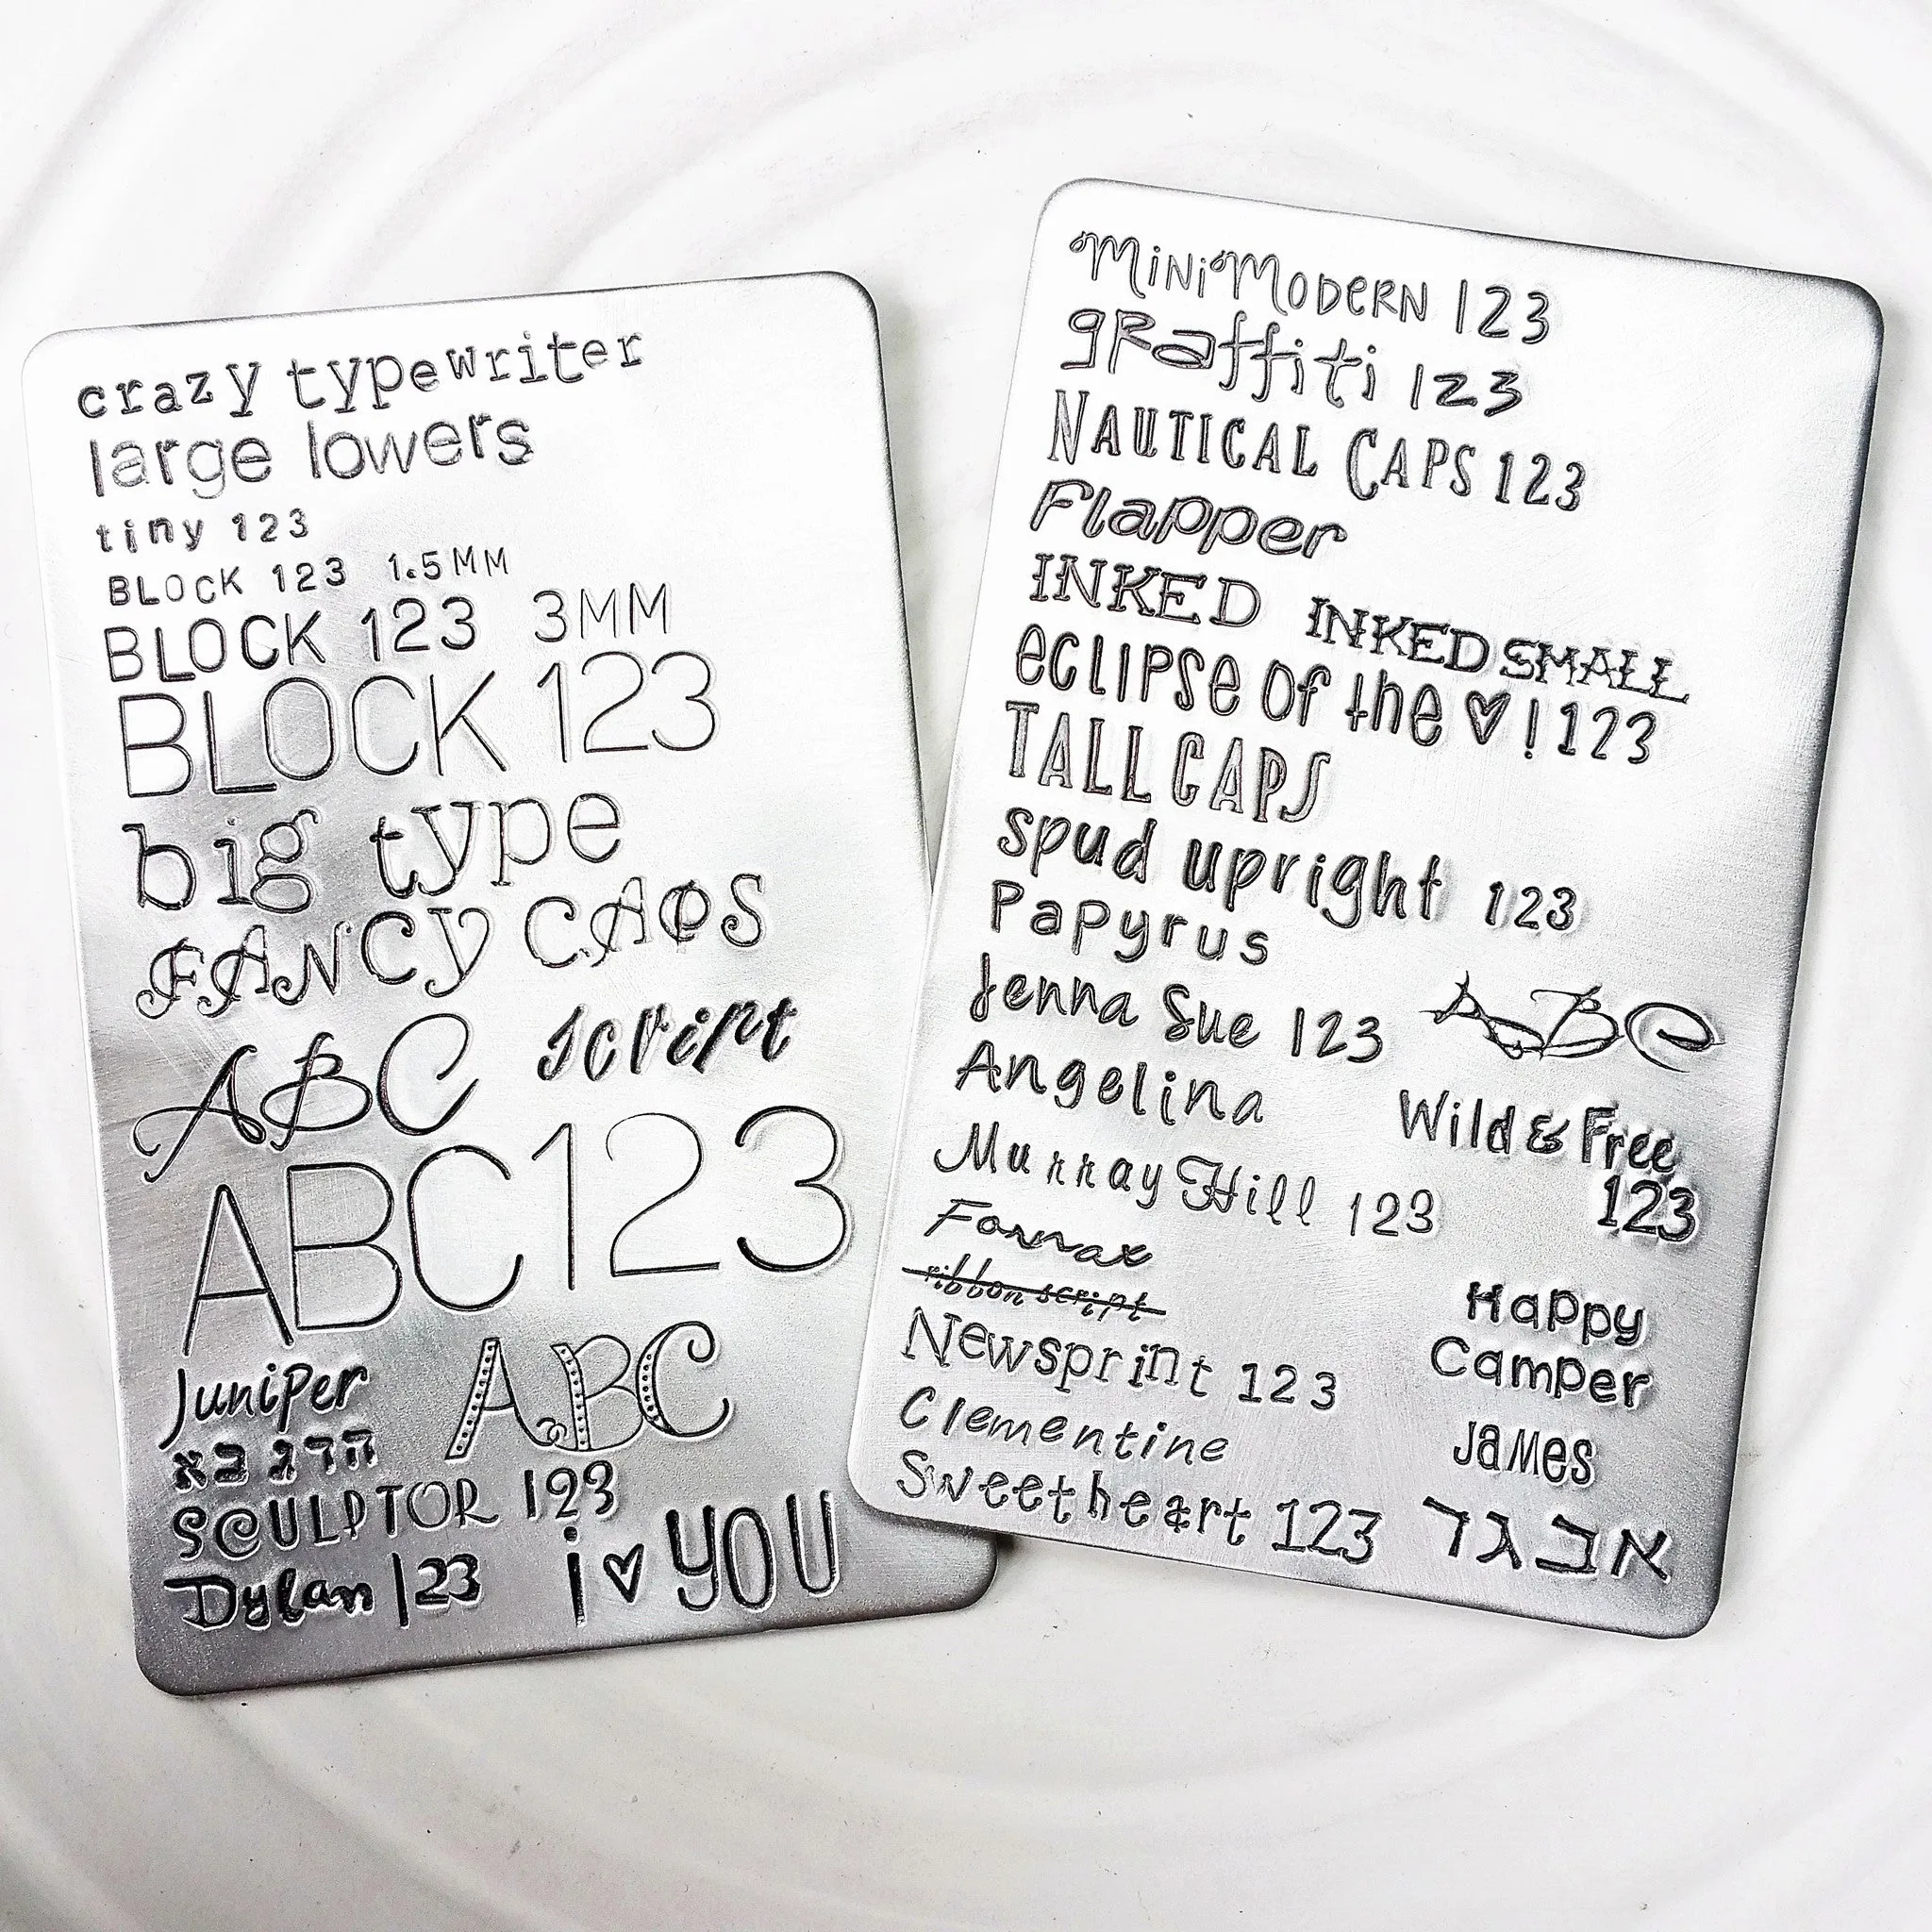 crazy typewriter
large lowers
tiny 123
BLOCK 123 1.5MM
BLOCK 123 3MM
BLOCK 123
big type
FANCY CAPS
ABC script
ABC123
Juniper
ABC
הדג בא
SCULPTOR 123
Dylan 123 i ♥ YOU
MiNiMODERN 123
gRaffiti 123
NAUTICAL CAPS 123
Flapper
INKED INKED SMALL
eclipse of the ♥! 123
TALL CAPS
spud upright 123
Papyrus
Jenna Sue 123 ABC
Angelina
Wild & Free
123
Murray Hill 123
Fornax
ribbon script
Happy
Camper
Newsprint 123
Clementine
JaMes
Sweetheart 123 אבגד